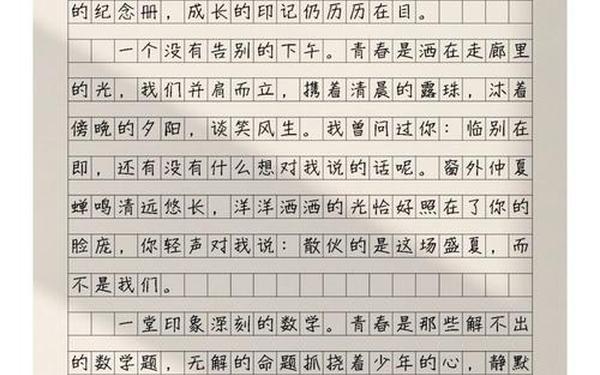 的纪念册，成长的印记仍历历在目。
一个没有告别的下午。青春是洒在走廊里
的光，我们并肩而立，携着清晨的露珠，沐着
傍晚的夕阳，谈笑风生。我曾问过你：临别在
即，还有没有什么想对我说的话呢。窗外仲夏
蝉鸣清远悠长，洋洋洒洒的光恰好照在了你的
脸庞，你轻声对我说：散伙的是这场盛夏，而
不是我们。
一堂印象深刻的数学。青春是那些解不出
的数学题，无解的命题抓挠着少年的心，静默